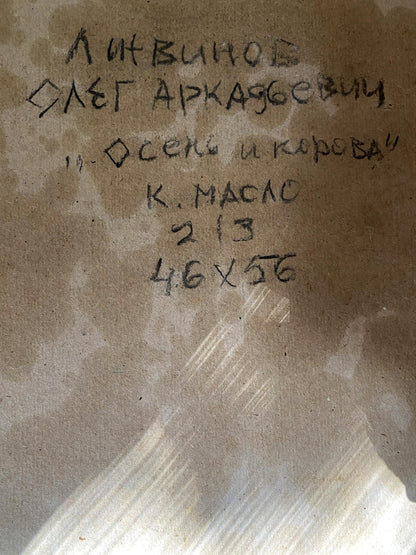 Литвинов
Олег Аркадьевич
"Осень и корова"
К. МАСЛО
213
46х56